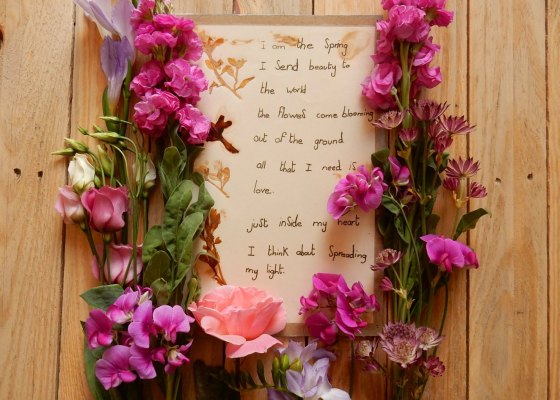 I am the Spring
I Send beauty to
the world
the flowers come blooming
out of the ground
all that I need is
love.
just inside my heart
I think about Spreading
my light.